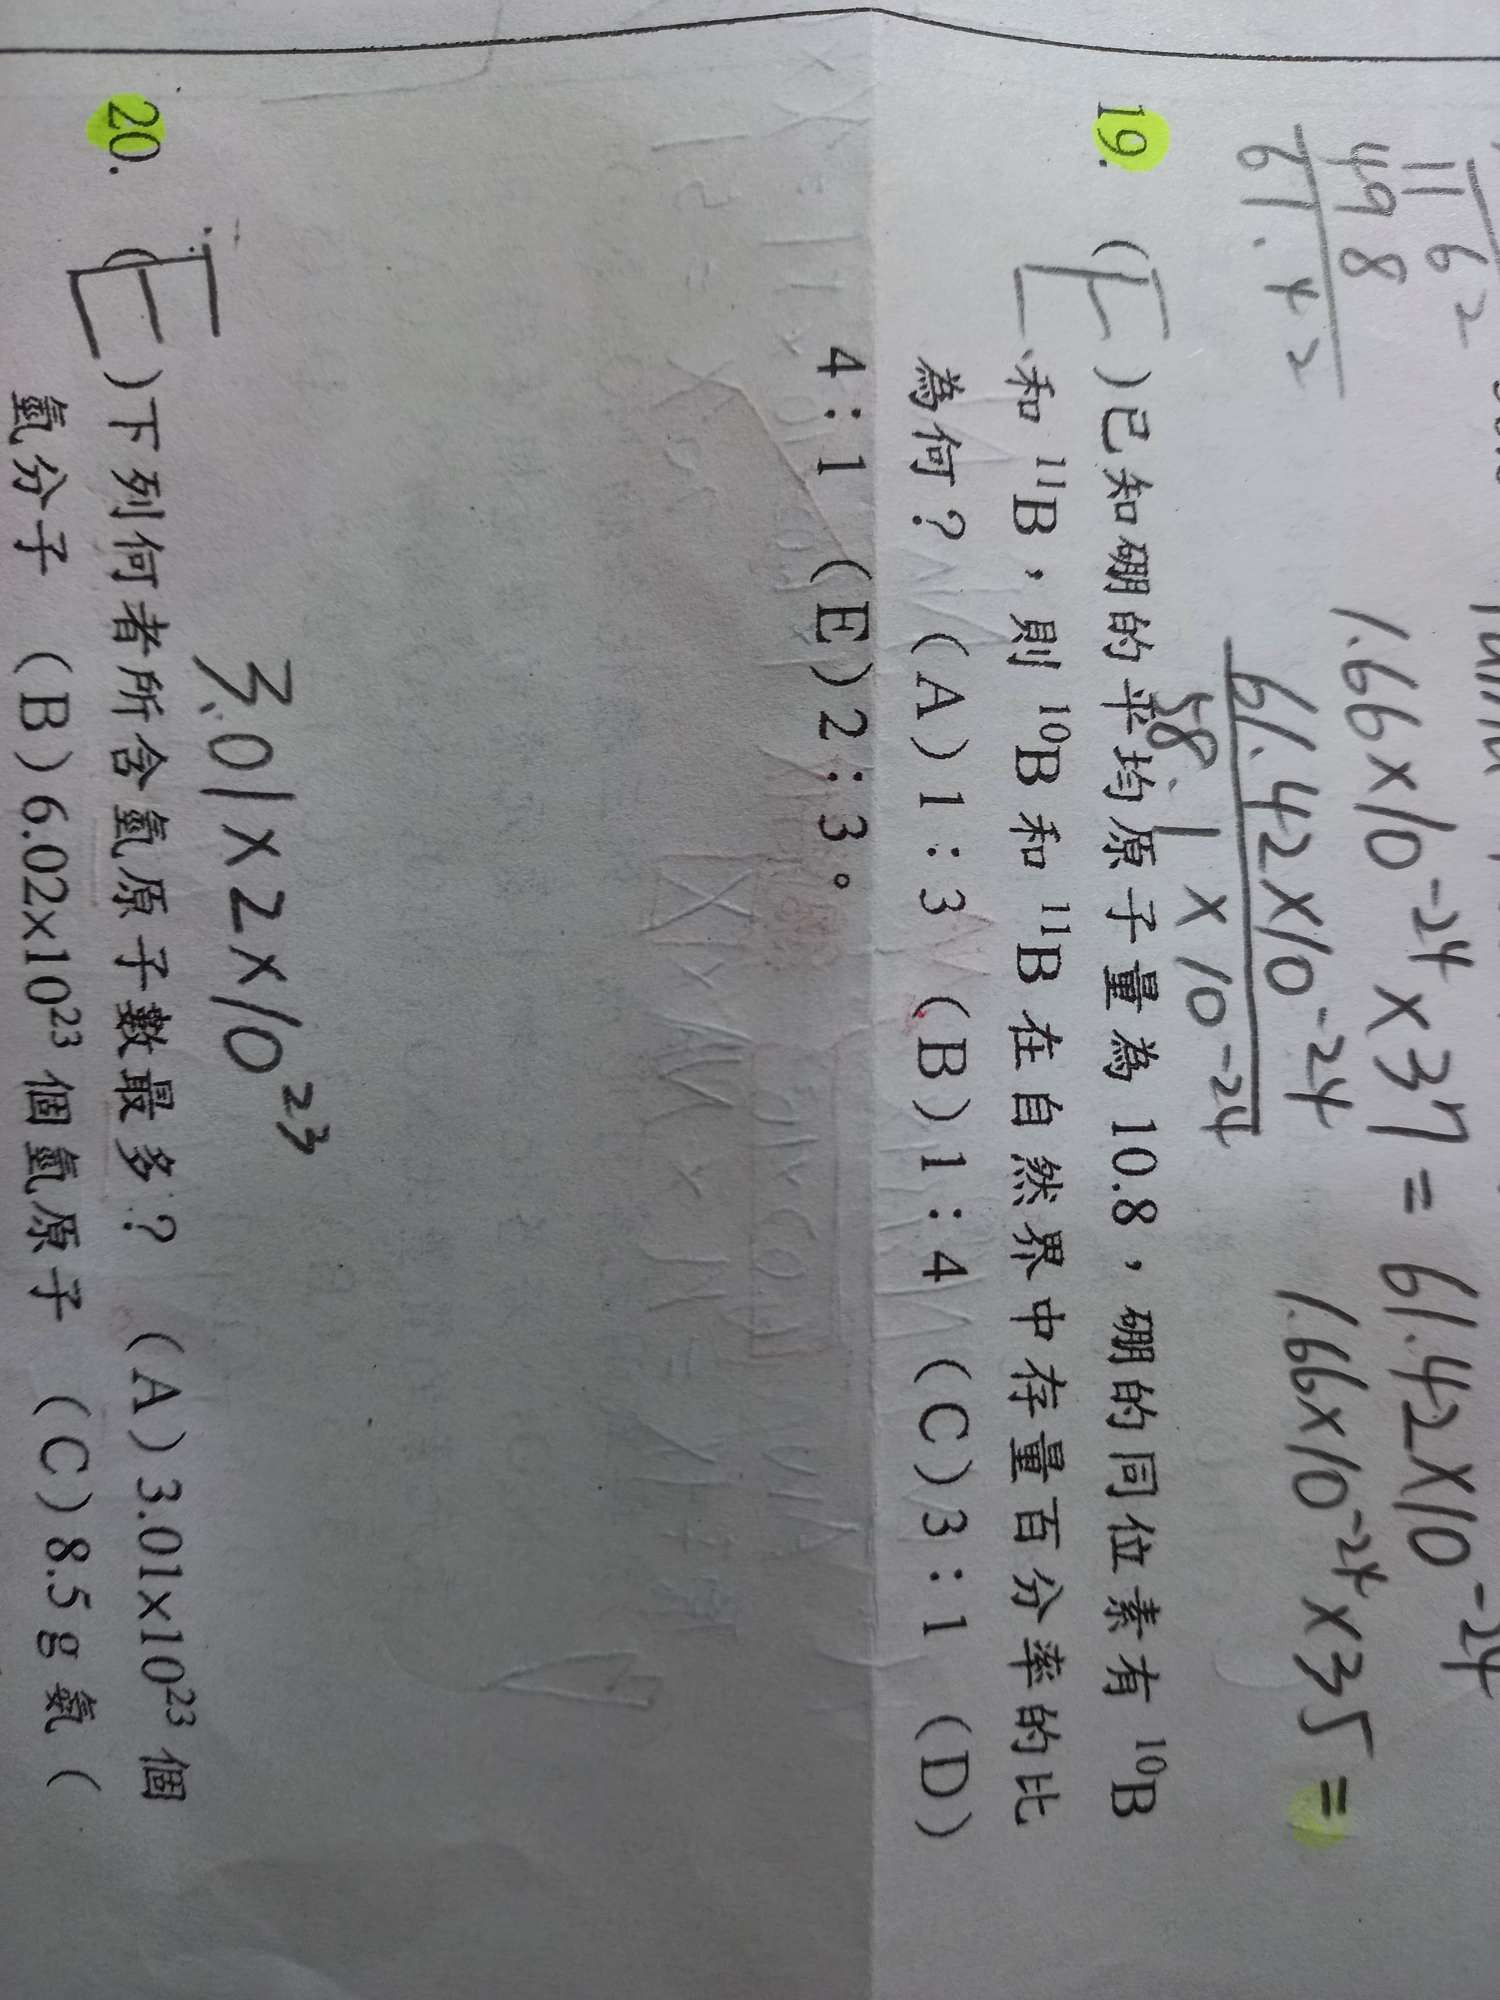 11 62
498
61.42
1.66×10⁻²⁴×37 = 61.42×10⁻²⁴
61.42×10⁻²⁴ 1.66×10⁻²⁴×35 =
58.1×10⁻²⁴
19. (E)已知硼的平均原子量為 10.8,硼的同位素有 ¹⁰B
和 ¹¹B,則 ¹⁰B 和 ¹¹B 在自然界中存量百分率的比
為何? (A)1:3 (B)1:4 (C)3:1 (D)
4:1 (E)2:3。
3.01×2×10²³
20. (E)下列何者所含氫原子數最多? (A)3.01×10²³ 個
氫分子 (B)6.02×10²³ 個氫原子 (C)8.5 g 氨(